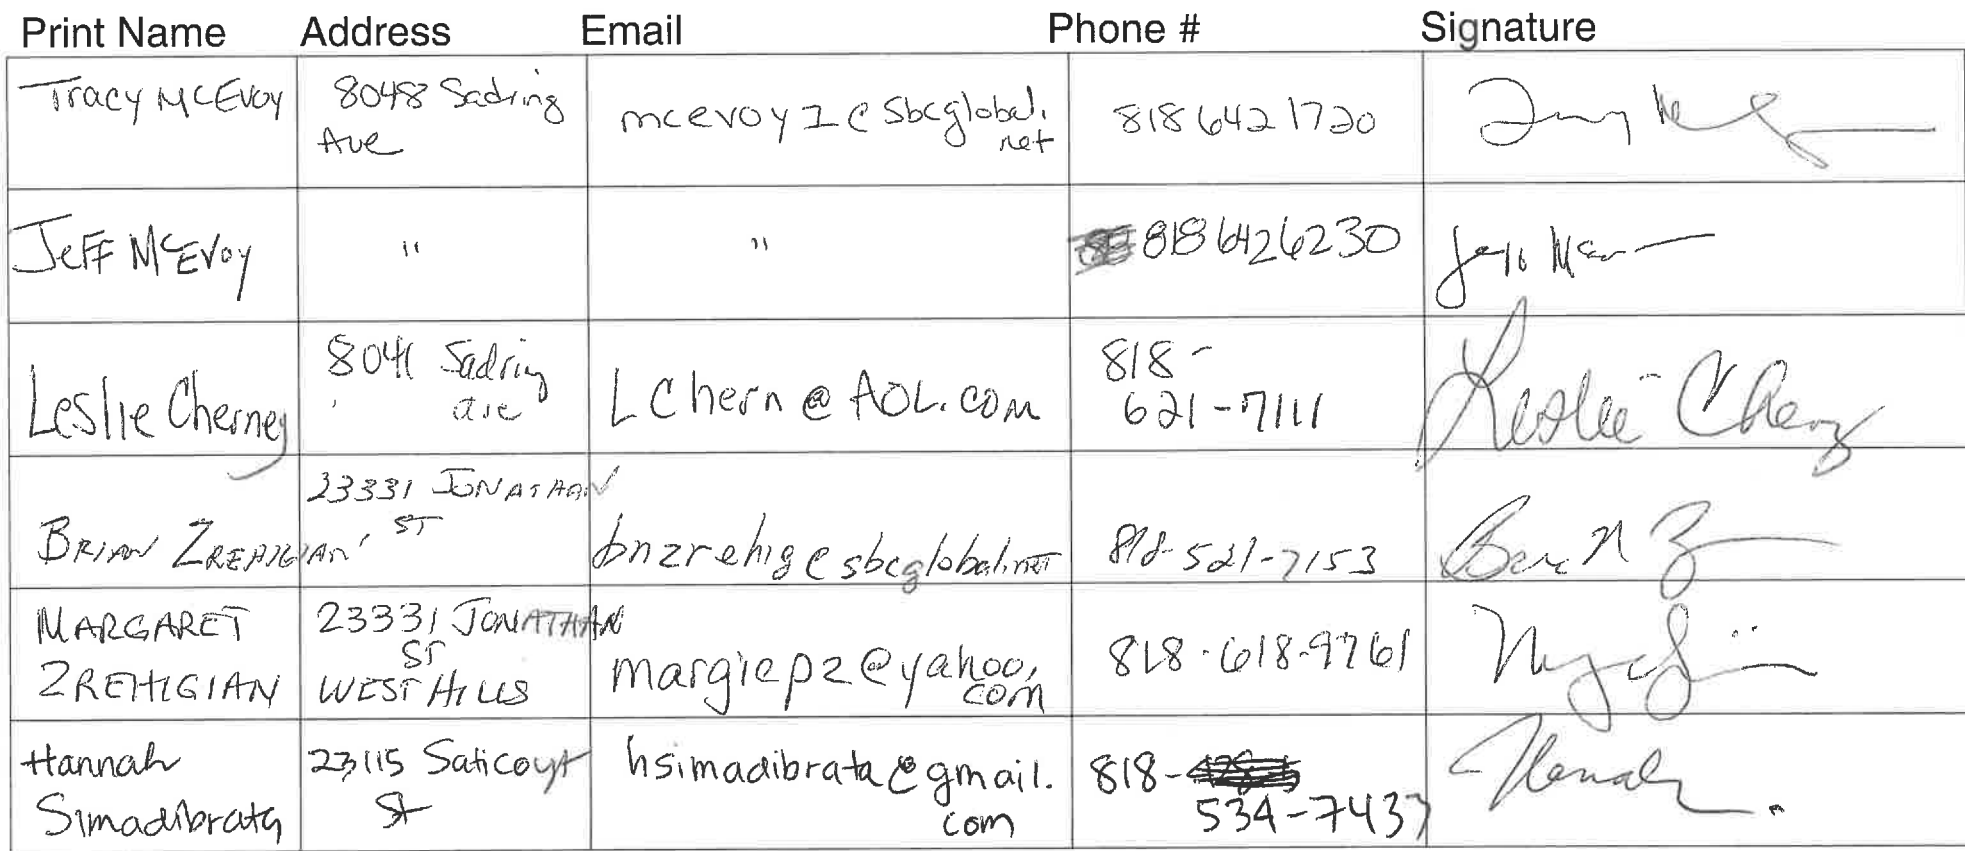 Print Name Address Email Phone # Signature
Tracy McEvoy 8048 Sadring Ave mcevoy1@sbcglobal.net 818 642 1720
Jeff McEvoy " " 818 642 6230
Leslie Cherney 8041 Sadring ave LChern@AOL.com 818-621-7111 Leslie Cherny
BRIAN ZREHIGIAN 23331 JONATHAN ST bnzrehig@sbcglobal.net 818-521-7153
MARGARET ZREHIGIAN 23331 JONATHAN ST WEST HILLS margiepz@yahoo.com 818-618-9761
Hannah Simadibrata 23115 Saticoy St hsimadibrata@gmail.com 818-534-7437 Hannah